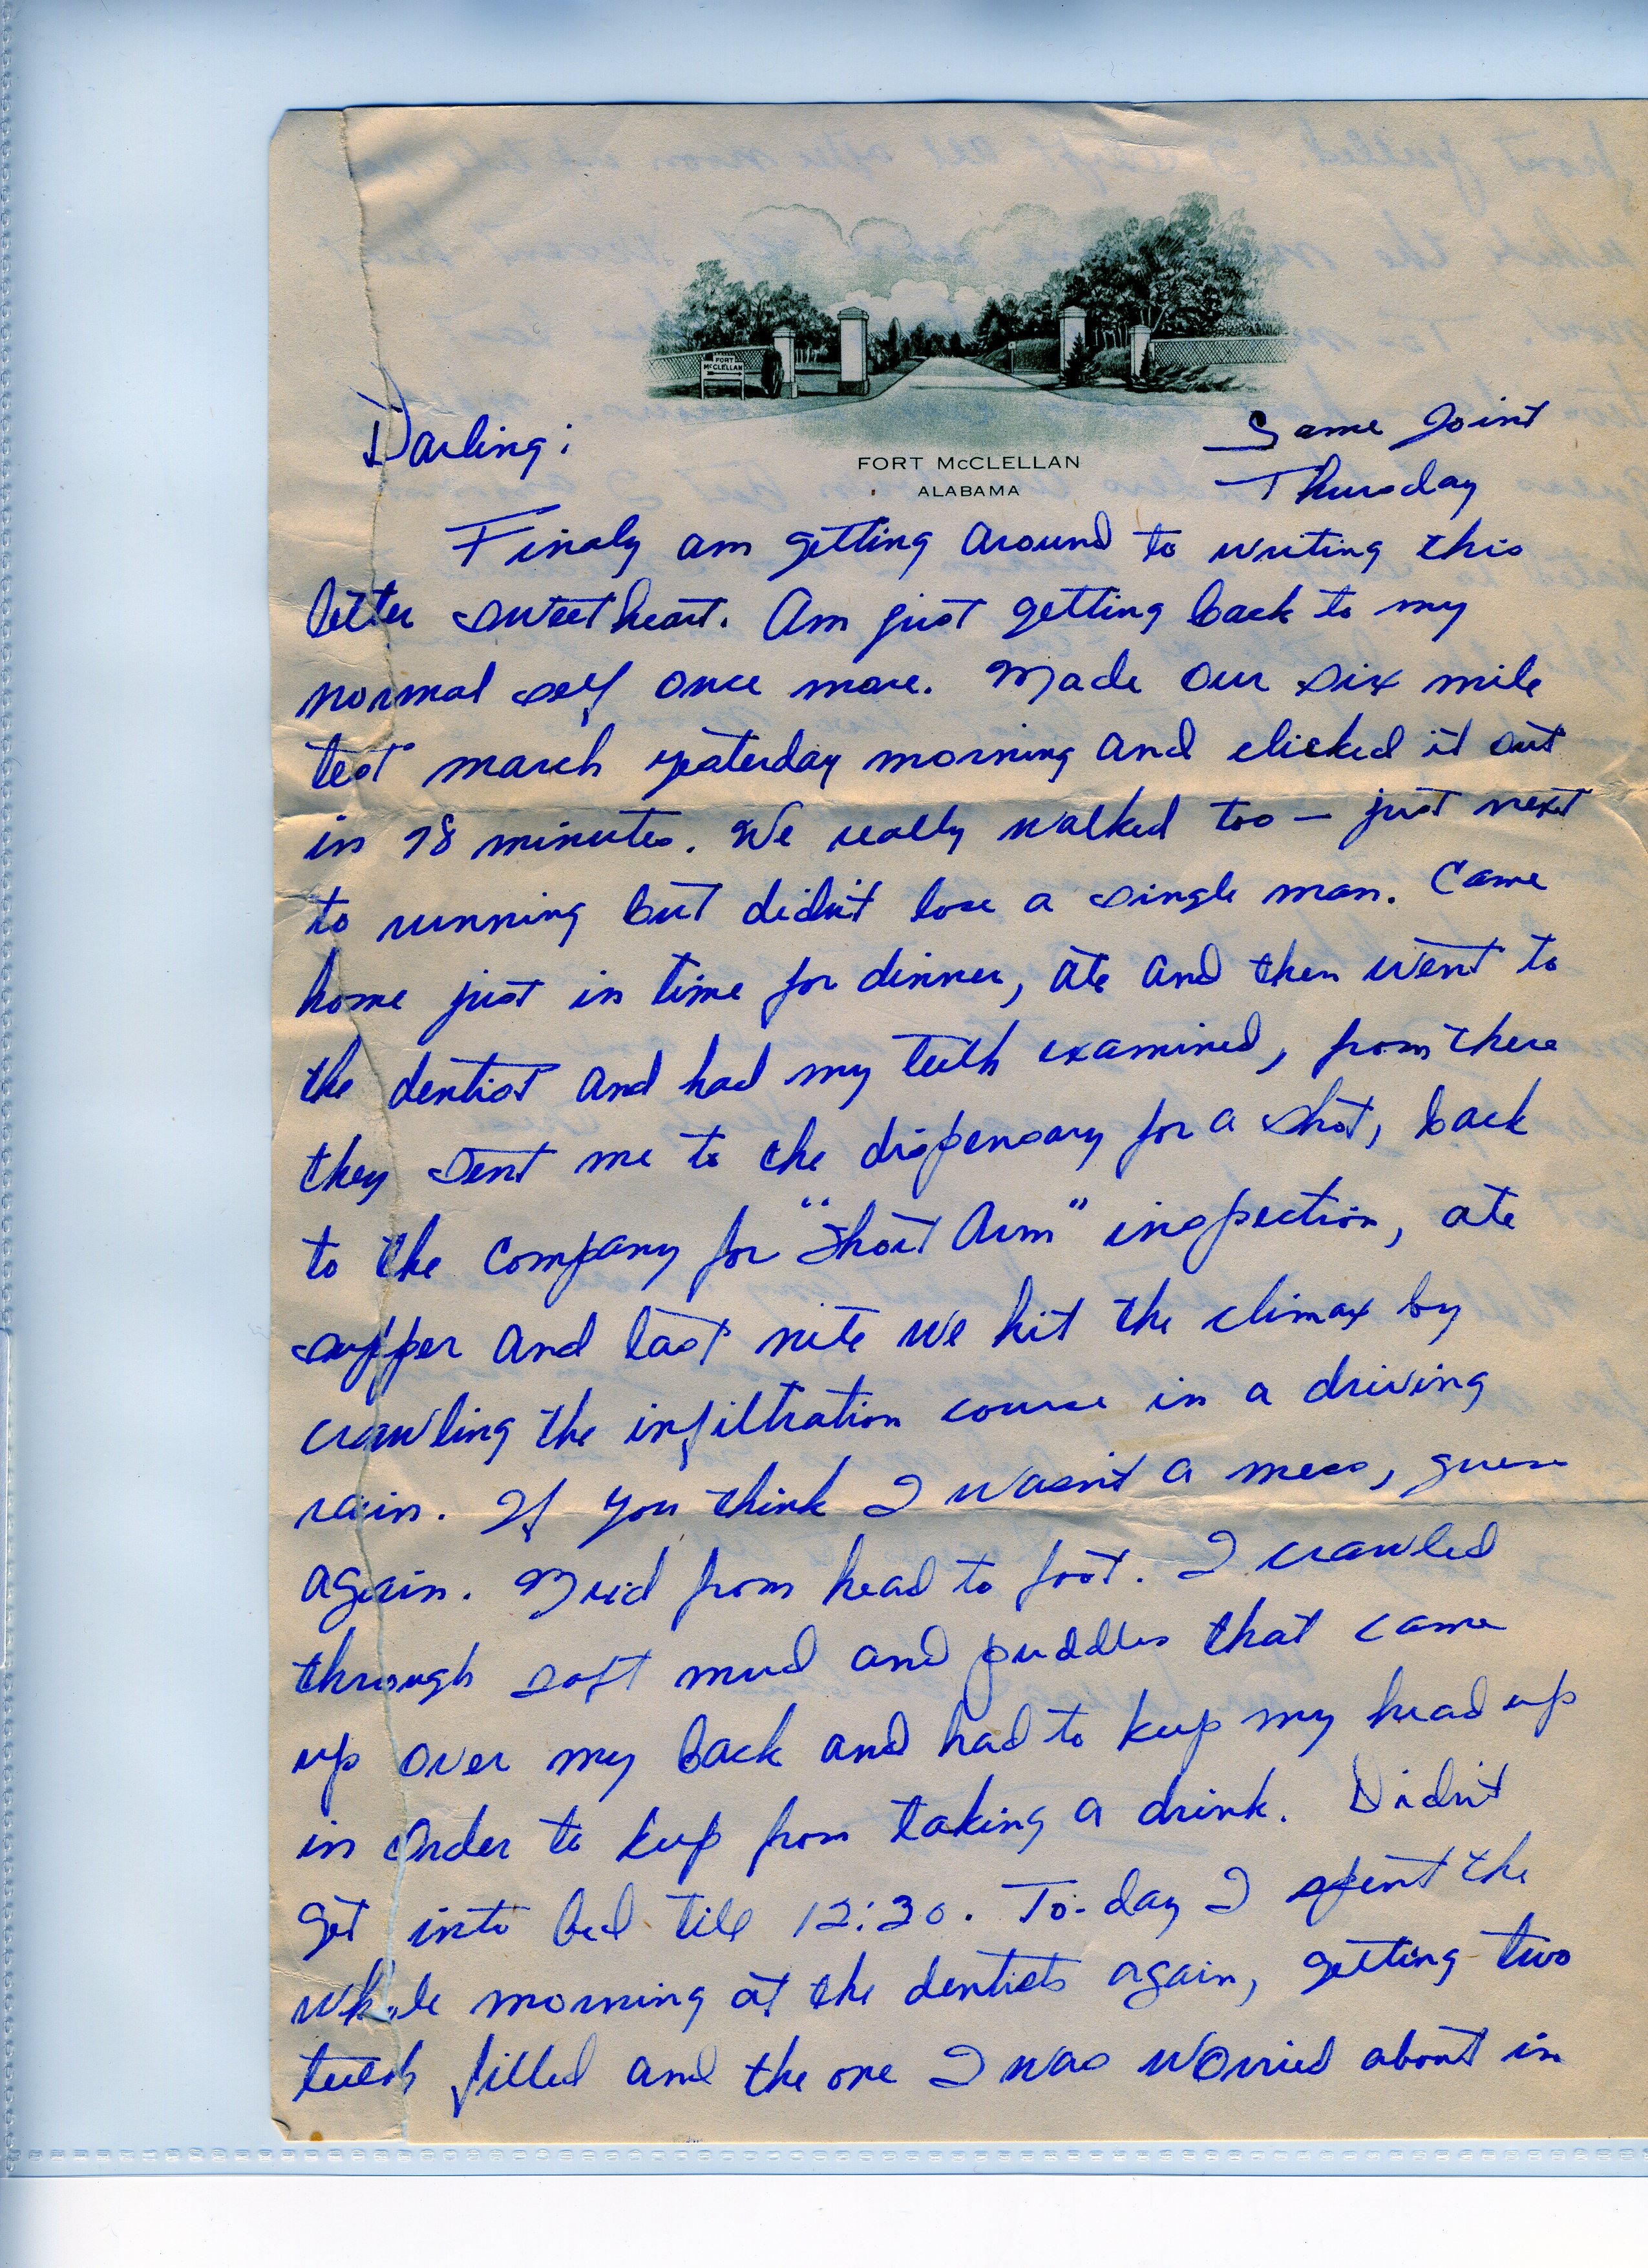 FORT
McCLELLAN
FORT McCLELLAN
ALABAMA
Same Joint
Thursday
Darling:
Finaly am getting around to writing this
letter sweetheart. Am just getting back to my
normal self once more. Made our six mile
test march yesterday morning and clicked it out
in 78 minutes. We really walked too – just next
to running but didn't lose a single man. Came
home just in time for dinner, ate and then went to
the dentist and had my teeth examined, from there
they sent me to the dispensary for a shot, back
to the company for "Short Arm" inspection, ate
supper and last nite we hit the climax by
crawling the infiltration course in a driving
rain. If you think I wasn't a mess, guess
again. Mud from head to foot. I crawled
through soft mud and puddles that came
up over my back and had to keep my head up
in order to keep from taking a drink. Didn't
get into bed till 12:30. To-day I spent the
whole morning at the dentists again, getting two
teeth filled and the one I was worried about in